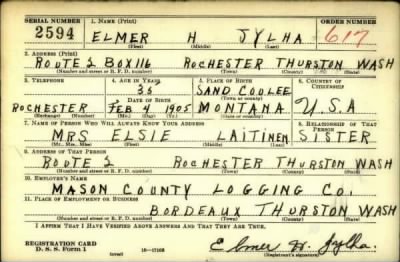 SERIAL NUMBER 1. NAME (Print) ORDER NUMBER
2594 ELMER H JYLHA 617
(First) (Middle) (Last)
2. ADDRESS (Print)
ROUTE 2 BOX 116 ROCHESTER THURSTON WASH
(Number and street or R. F. D. number) (Town) (County) (State)
3. TELEPHONE 4. AGE IN YEARS 5. PLACE OF BIRTH 6. COUNTRY OF CITIZENSHIP
35 SAND COULEE
DATE OF BIRTH (Town or county)
ROCHESTER FEB 4 1905 MONTANA U.S.A
(Exchange) (Number) (Mo.) (Day) (Yr.) (State or country)
7. NAME OF PERSON WHO WILL ALWAYS KNOW YOUR ADDRESS 8. RELATIONSHIP OF THAT PERSON
MRS ELSIE LAITINEN SISTER
(Mr., Mrs., Miss) (First) (Middle) (Last)
9. ADDRESS OF THAT PERSON
ROUTE 2 ROCHESTER THURSTON WASH
(Number and street or R. F. D. number) (Town) (County) (State)
10. EMPLOYER'S NAME
MASON COUNTY LOGGING CO.
11. PLACE OF EMPLOYMENT OR BUSINESS
BORDEAUX THURSTON WASH
(Number and street or R. F. D. number) (Town) (County) (State)
I AFFIRM THAT I HAVE VERIFIED ABOVE ANSWERS AND THAT THEY ARE TRUE.
REGISTRATION CARD
D. S. S. Form 1 (over) 16—17105 Elmer H. Jylha
(Registrant's signature)